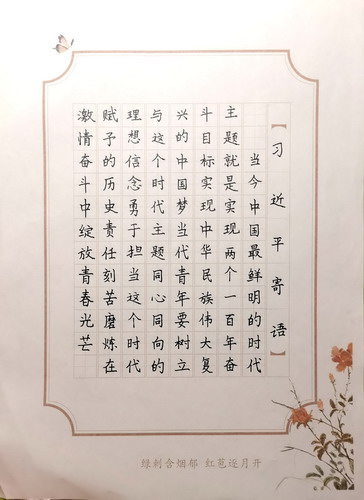 【习近平寄语】
当今中国最鲜明的时代
主题就是实现两个一百年奋
斗目标实现中华民族伟大复
兴的中国梦当代青年要树立
与这个时代主题同心同向的
理想信念勇于担当这个时代
赋予的历史责任刻苦磨炼在
激情奋斗中绽放青春光芒
绿刺含烟郁 红苞逐月开